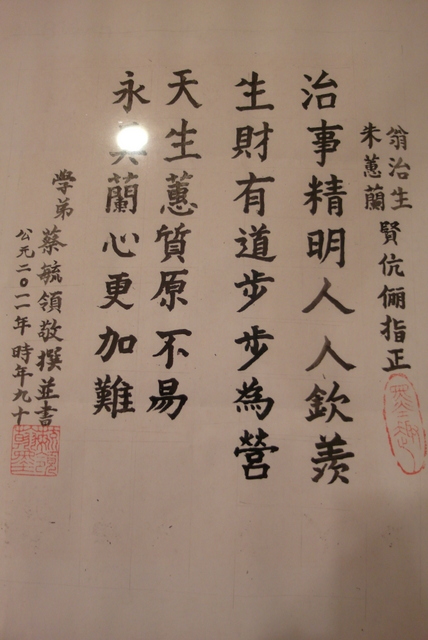 翁治生
朱蕙蘭
賢伉儷指正
治事精明人人欽羨
生財有道步步為營
天生蕙質原不易
永其蘭心更加難
學弟
蔡毓領敬撰並書
公元二〇一一年 時年九十